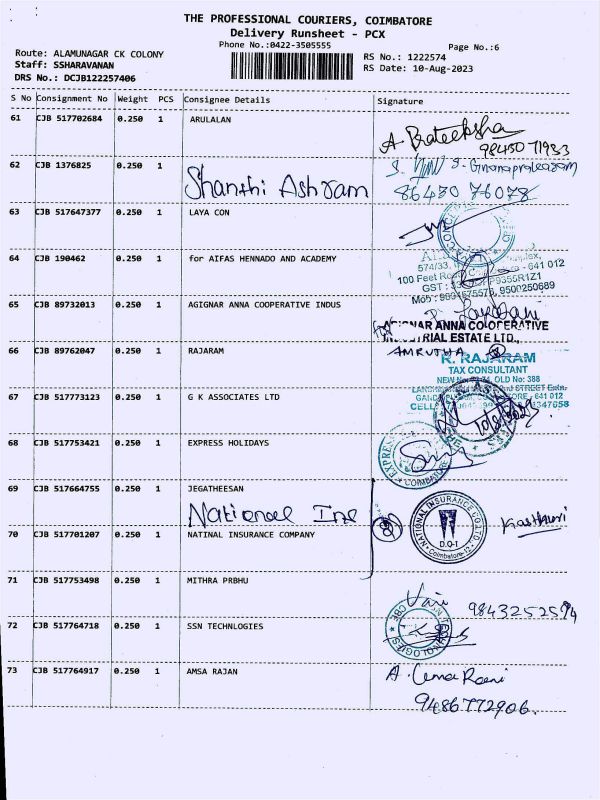 THE PROFESSIONAL COURIERS, COIMBATORE
Delivery Runsheet - PCX
Phone No.:0422-3505555
Page No.:6
Route: ALAMUNAGAR CK COLONY
RS No.: 1222574
Staff: SSHARAVANAN
RS Date: 10-Aug-2023
DRS No.: DCJB122257406
S No Consignment No Weight PCS Consignee Details Signature
61 CJB 517702684 0.250 1 ARULALAN
A. Prateeksha
98450 71933
62 CJB 1376825 0.250 1
Shanthi Ashram
S. Gnanaprakasam
86430 76078
63 CJB 517647377 0.250 1 LAYA CON
64 CJB 190462 0.250 1 for AIFAS HENNADO AND ACADEMY
574/33, 641 012
100 Feet
GST :
Mob : 9500250689
65 CJB 89732013 0.250 1 AGIGNAR ANNA COOPERATIVE INDUS
ANNA CO.OPERATIVE
ESTATE LTD.,
66 CJB 89762047 0.250 1 RAJARAM
AMRUTHA
R. RAJARAM
TAX CONSULTANT
OLD No: 388
STREET Extn.
641 012
67 CJB 517773123 0.250 1 G K ASSOCIATES LTD
68 CJB 517753421 0.250 1 EXPRESS HOLIDAYS
EXPRESS
COIMBATORE
69 CJB 517664755 0.250 1 JEGATHEESAN
National Ins
70 CJB 517701207 0.250 1 NATINAL INSURANCE COMPANY
NATIONAL INSURANCE CO LTD
D.O-I
Coimbatore-12
Kasthuri
71 CJB 517753498 0.250 1 MITHRA PRBHU
9843252574
72 CJB 517764718 0.250 1 SSN TECHNLOGIES
CBE
73 CJB 517764917 0.250 1 AMSA RAJAN
A. Uma Rani
9486772906.